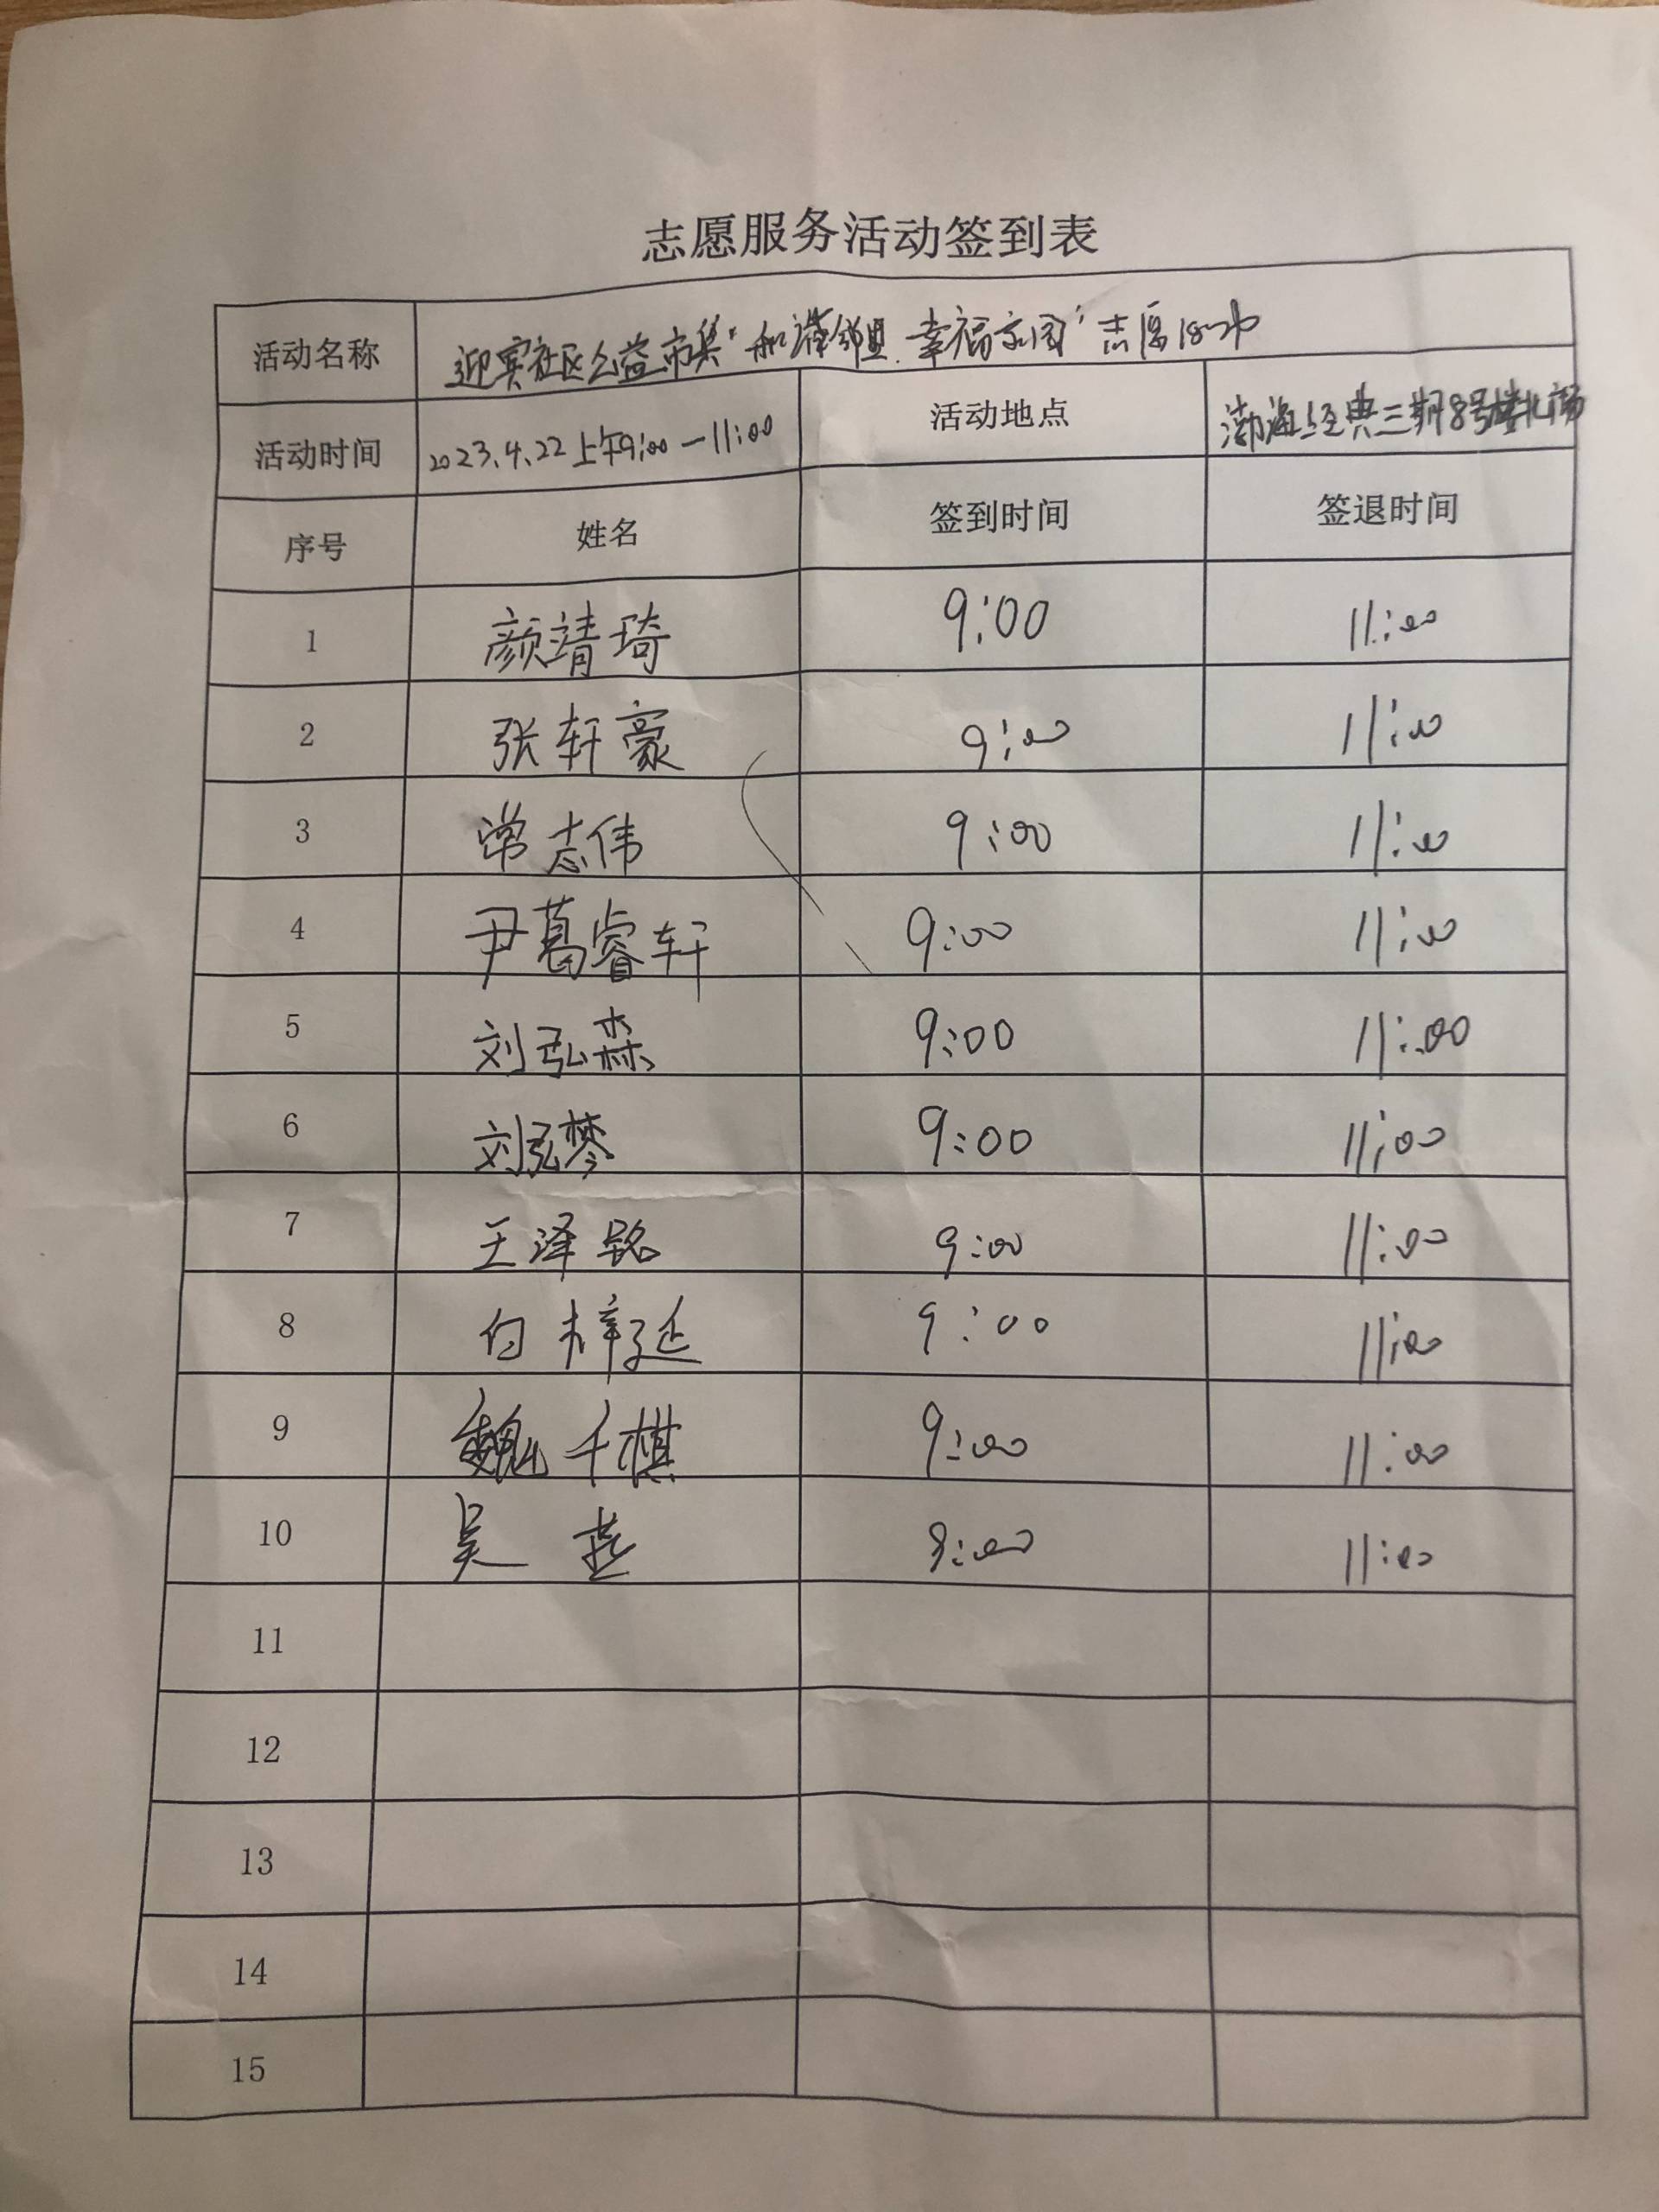 志愿服务活动签到表
活动名称 迎宾社区公益市集"和谐邻里 幸福家园"志愿活动
活动时间 2023.4.22上午9:00-11:00 活动地点 渤海经典三期8号楼北广场
序号 姓名 签到时间 签退时间
1 颜靖琦 9:00 11:00
2 张轩豪 9:00 11:00
3 常志伟 9:00 11:00
4 尹葛睿轩 9:00 11:00
5 刘弘森 9:00 11:00
6 刘弘梦 9:00 11:00
7 王泽铭 9:00 11:00
8 白梓延 9:00 11:00
9 魏千棋 9:00 11:00
10 吴燕 9:00 11:00
11
12
13
14
15